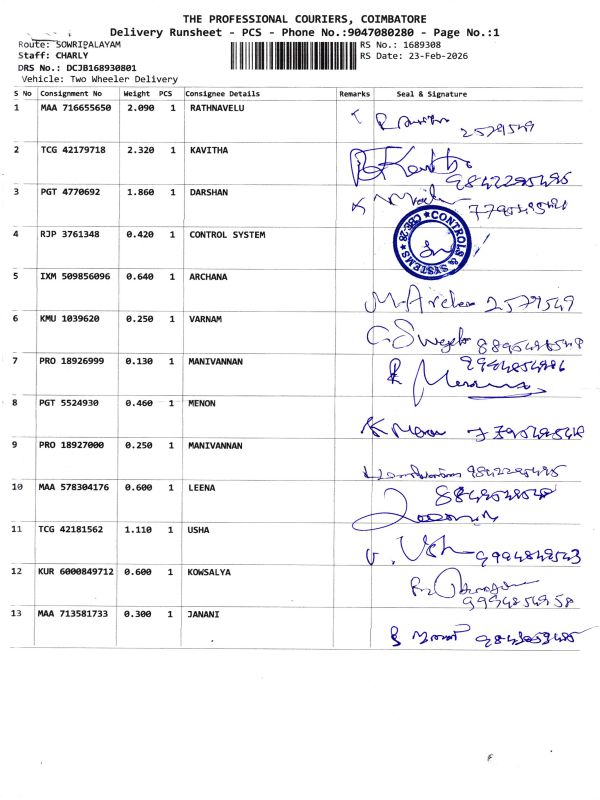 THE PROFESSIONAL COURIERS, COIMBATORE
Delivery Runsheet - PCS - Phone No.:9047080280 - Page No.:1
Route: SOWRIPALAYAM RS No.: 1689308
Staff: CHARLY RS Date: 23-Feb-2026
DRS No.: DCJB168930801
Vehicle: Two Wheeler Delivery
S No Consignment No Weight PCS Consignee Details Remarks Seal & Signature
1 MAA 716655650 2.090 1 RATHNAVELU
2579549
2 TCG 42179718 2.320 1 KAVITHA
9842295495
3 PGT 4770692 1.860 1 DARSHAN
4 RJP 3761348 0.420 1 CONTROL SYSTEM
CONTROLS & SYSTEMS
5 IXM 509856096 0.640 1 ARCHANA
2579549
6 KMU 1039620 0.250 1 VARNAM
7 PRO 18926999 0.130 1 MANIVANNAN
8 PGT 5524930 0.460 1 MENON
9 PRO 18927000 0.250 1 MANIVANNAN
9842295495
10 MAA 578304176 0.600 1 LEENA
11 TCG 42181562 1.110 1 USHA
9994849543
12 KUR 6000849712 0.600 1 KOWSALYA
13 MAA 713581733 0.300 1 JANANI